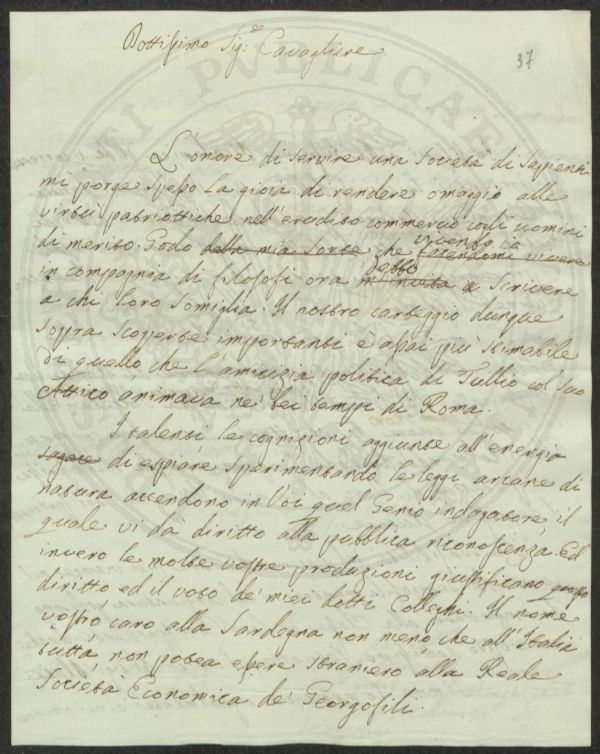 Dottissimo Sig.e Cavagliere
37
L'onore di servire una Società di Sapienti
mi porge spesso la gioia di rendere omaggio alle
virtù patriottiche nell'erudito commercio cogli uomini
di merito. Godo della mia sorte che vivendo io facendomi vivere
in compagnia di filosofi ora debbo m'invita a scrivere
a chi loro somiglia. Il nostro carteggio dunque
sopra scoperte importanti è assai più stimabile
di quello che l'amicizia politica di Tullio col suo
Attico animava ne' bei tempi di Roma.
I talenti le cognizioni aggiunte all'energia
sagace di espiare sperimentando le leggi arcane di
natura accendono in Voi quel Genio indagatore il
quale vi dà diritto alla pubblica riconoscenza. Ed
invero le molte vostre produzioni giustificano questo
diritto ed il voto de' miei dotti Colleghi. Il nome
vostro caro alla Sardegna non meno che all'Italia
tutta, non potea essere straniero alla Reale
Società Economica de' Georgofili.